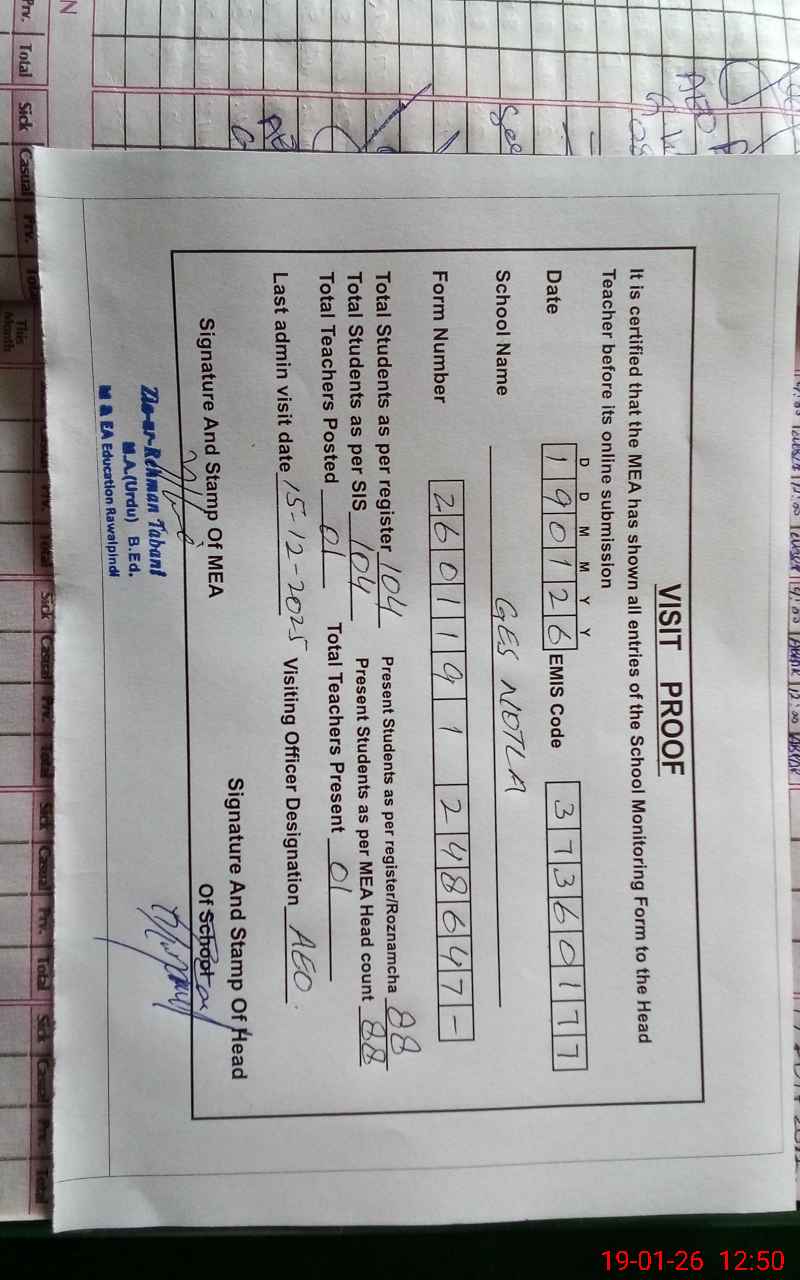 VISIT PROOF
It is certified that the MEA has shown all entries of the School Monitoring Form to the Head
Teacher before its online submission
D D M M Y Y
Date 190126 EMIS Code 37360177
School Name GES NOTLA
Form Number 2601191 248647-
Total Students as per register 104 Present Students as per register/Roznamcha 88
Total Students as per SIS 104 Present Students as per MEA Head count 88
Total Teachers Posted 01 Total Teachers Present 01
Last admin visit date 15-12-2025 Visiting Officer Designation AEO.
Signature And Stamp Of MEA
Signature And Stamp Of Head
Of School
Zia-ur-Rehman Tabani
M.A.(Urdu) B.Ed.
M & EA Education Rawalpindi
Prv. Total Sick Casual Prv.
This
Month
Sick Casual Prv. Total Sick Casual Prv. Total Sick Casual Prv. Total
19-01-26 12:50